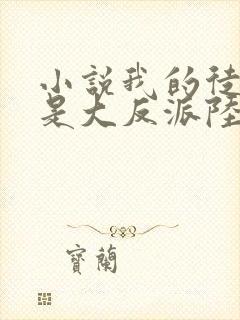 小說我的徒
是大反派陸
寶蘭